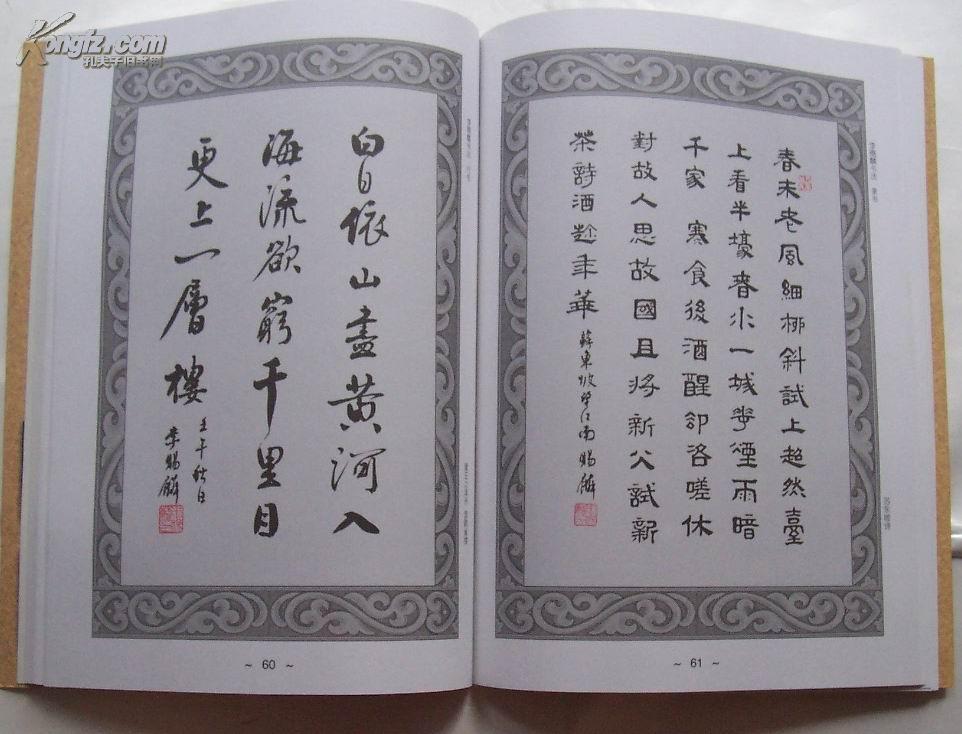 Kongfz.com
孔夫子旧书网
李赐麟书法 行书
白日依山盡黄河入
海流欲窮千里目
更上一層樓
壬午秋日
李賜麟
~ 60 ~
李赐麟书法 隶书
春未老風細柳斜試上超然臺
上看半壕春水一城花煙雨暗
千家 寒食後酒醒卻洛嗟休
對故人思故國且將新火試新
茶詩酒趁年華
蘇東坡望江南 賜麟
~ 61 ~